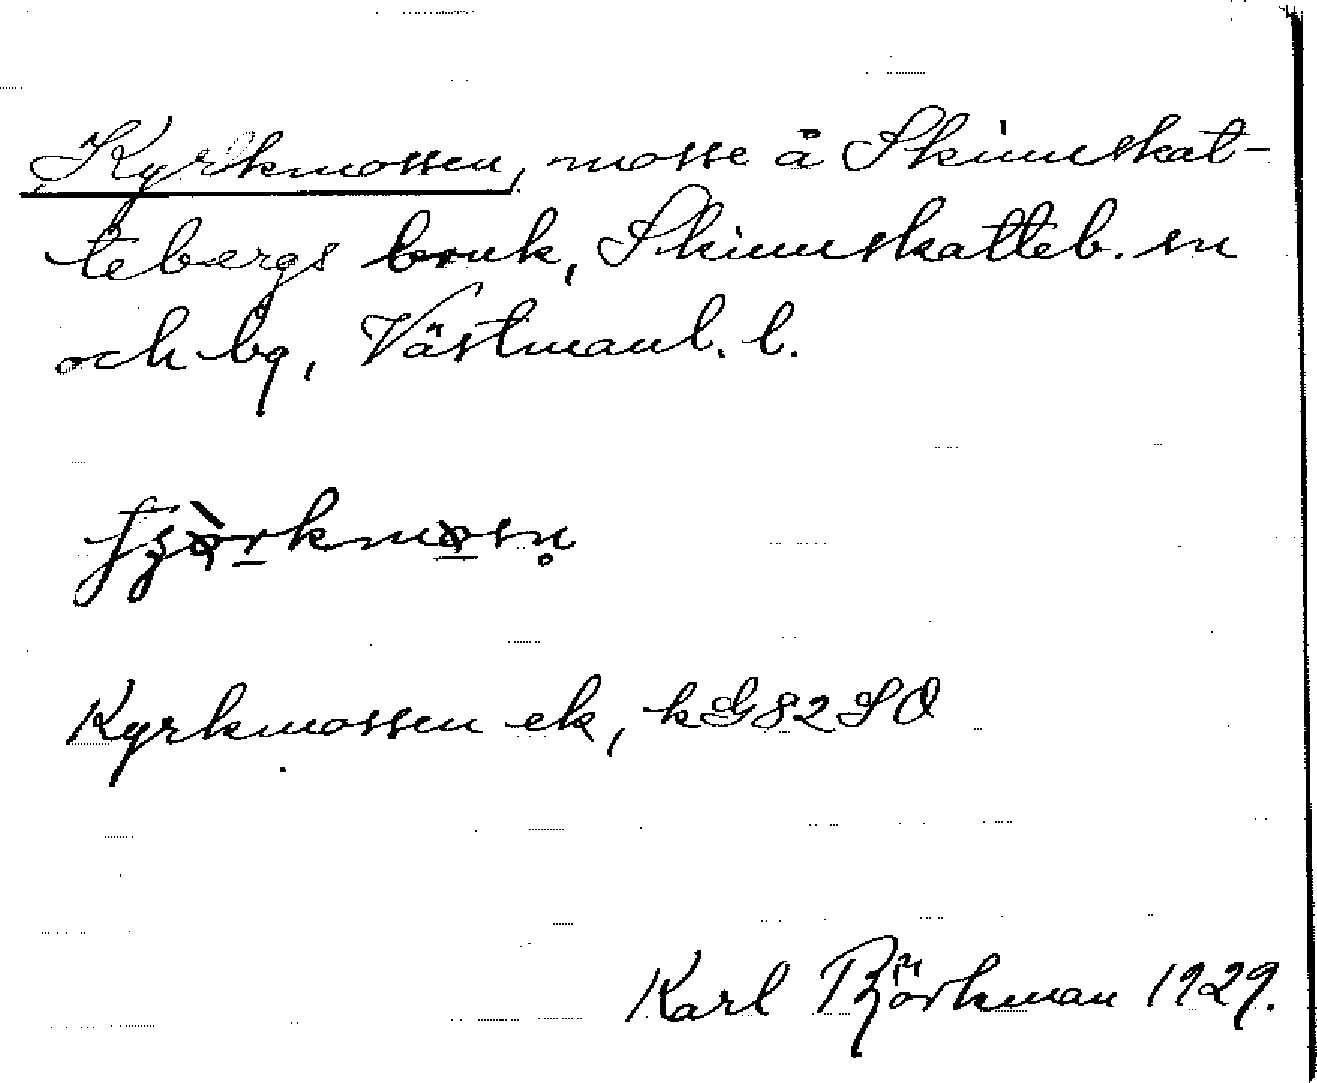 Kyrkmossen, mosse å Skinnskat-
tebergs bruk, Skinnskatteb. sn
och bg, Västmanl. l.
Kyrkmossen ek, kG82SO
Karl Björkman 1929.